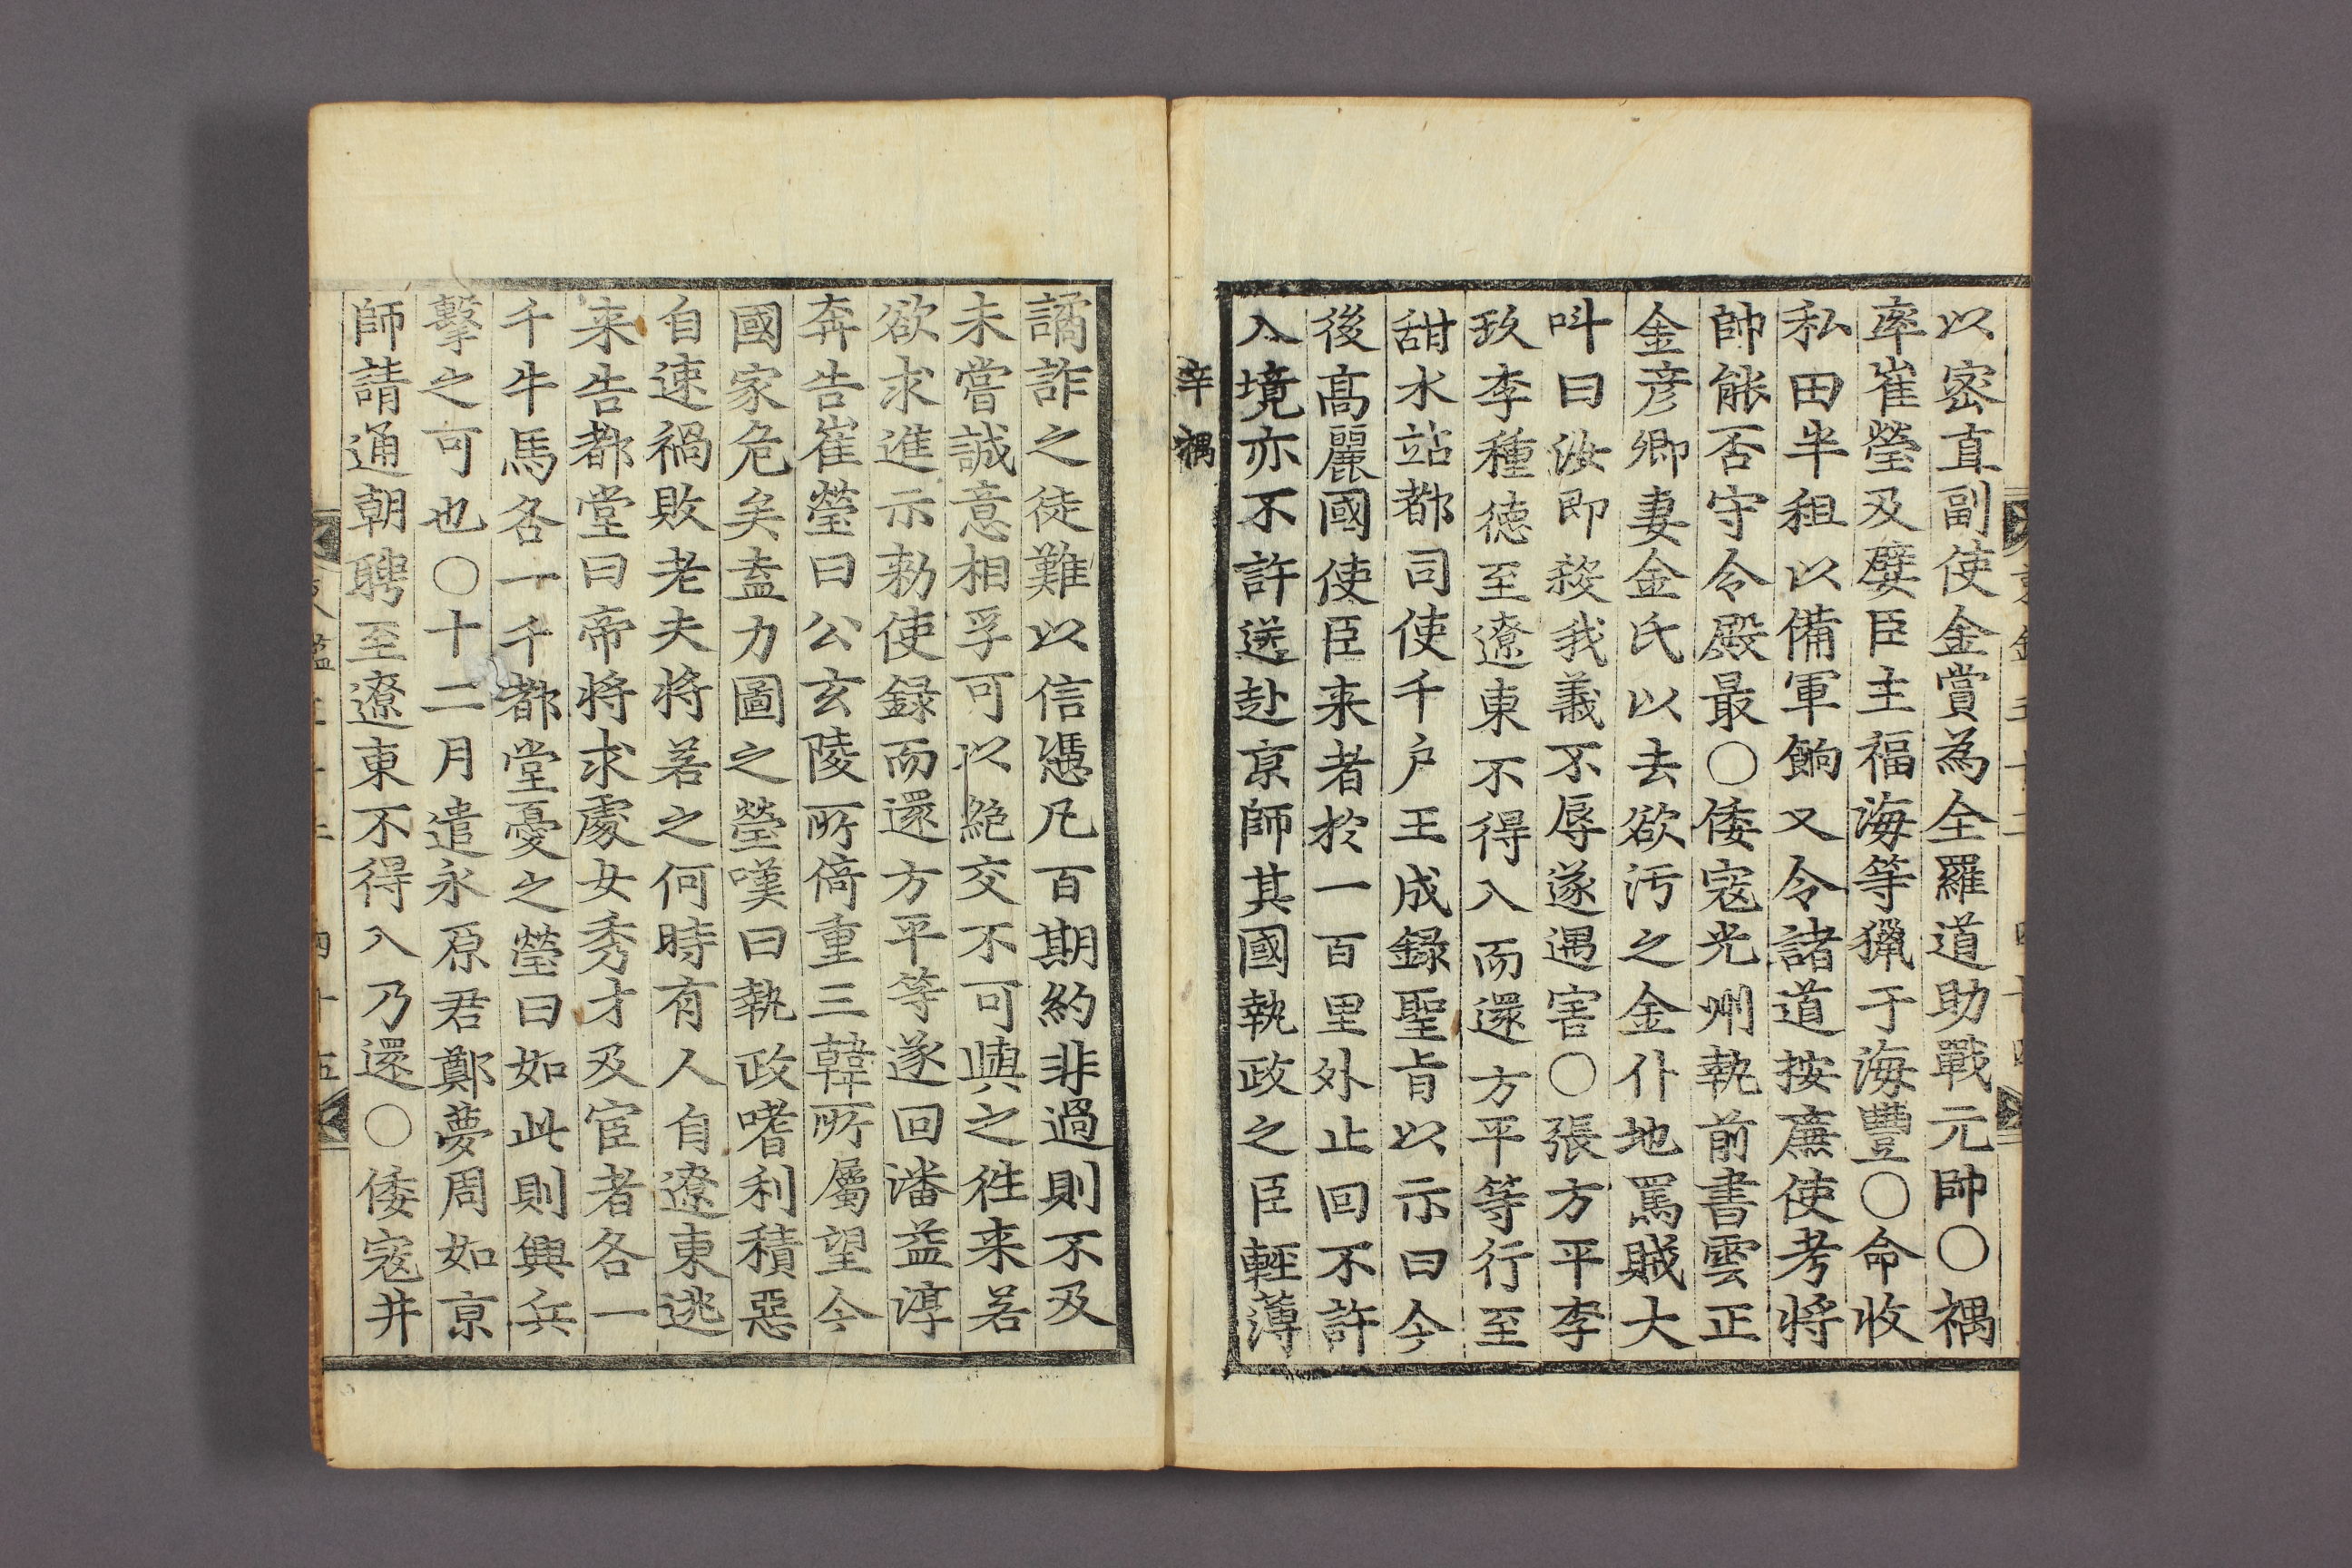 以密直副使金賞為全羅道助戰元帥○禑
率崔瑩及嬖臣主福海等獵于海豐○命收
私田半租以備軍餉又令諸道按廉使考將
帥能否守令殿最○倭寇光州執前書雲正
金彦卿妻金氏以去欲汚之金仆地罵賊大
叫曰汝即殺我義不辱遂遇害○張方平李
玖李種德至遼東不得入而還方平等行至
甜水站都司使千户王成錄聖旨以示曰今
後髙麗國使臣来者於一百里外止回不許
入境亦不許送赴京師其國執政之臣輕薄
辛禑
譎詐之徒難以信憑凡百期約非過則不及
未嘗誠意相孚可以絶交不可與之徃来若
欲求進示勅使録而還方平等遂回潘益淳
奔告崔瑩曰公玄陵所倚重三韓所屬望今
國家危矣盍力圖之瑩嘆曰執政嗜利積惡
自速禍敗老夫将若之何時有人自遼東逃
来告都堂曰帝将求處女秀才及宦者各一
千牛馬各一千都堂憂之瑩曰如此則興兵
擊之可也○十二月遣永原君鄭夢周如京
師請通朝聘至遼東不得入乃還○倭寇井